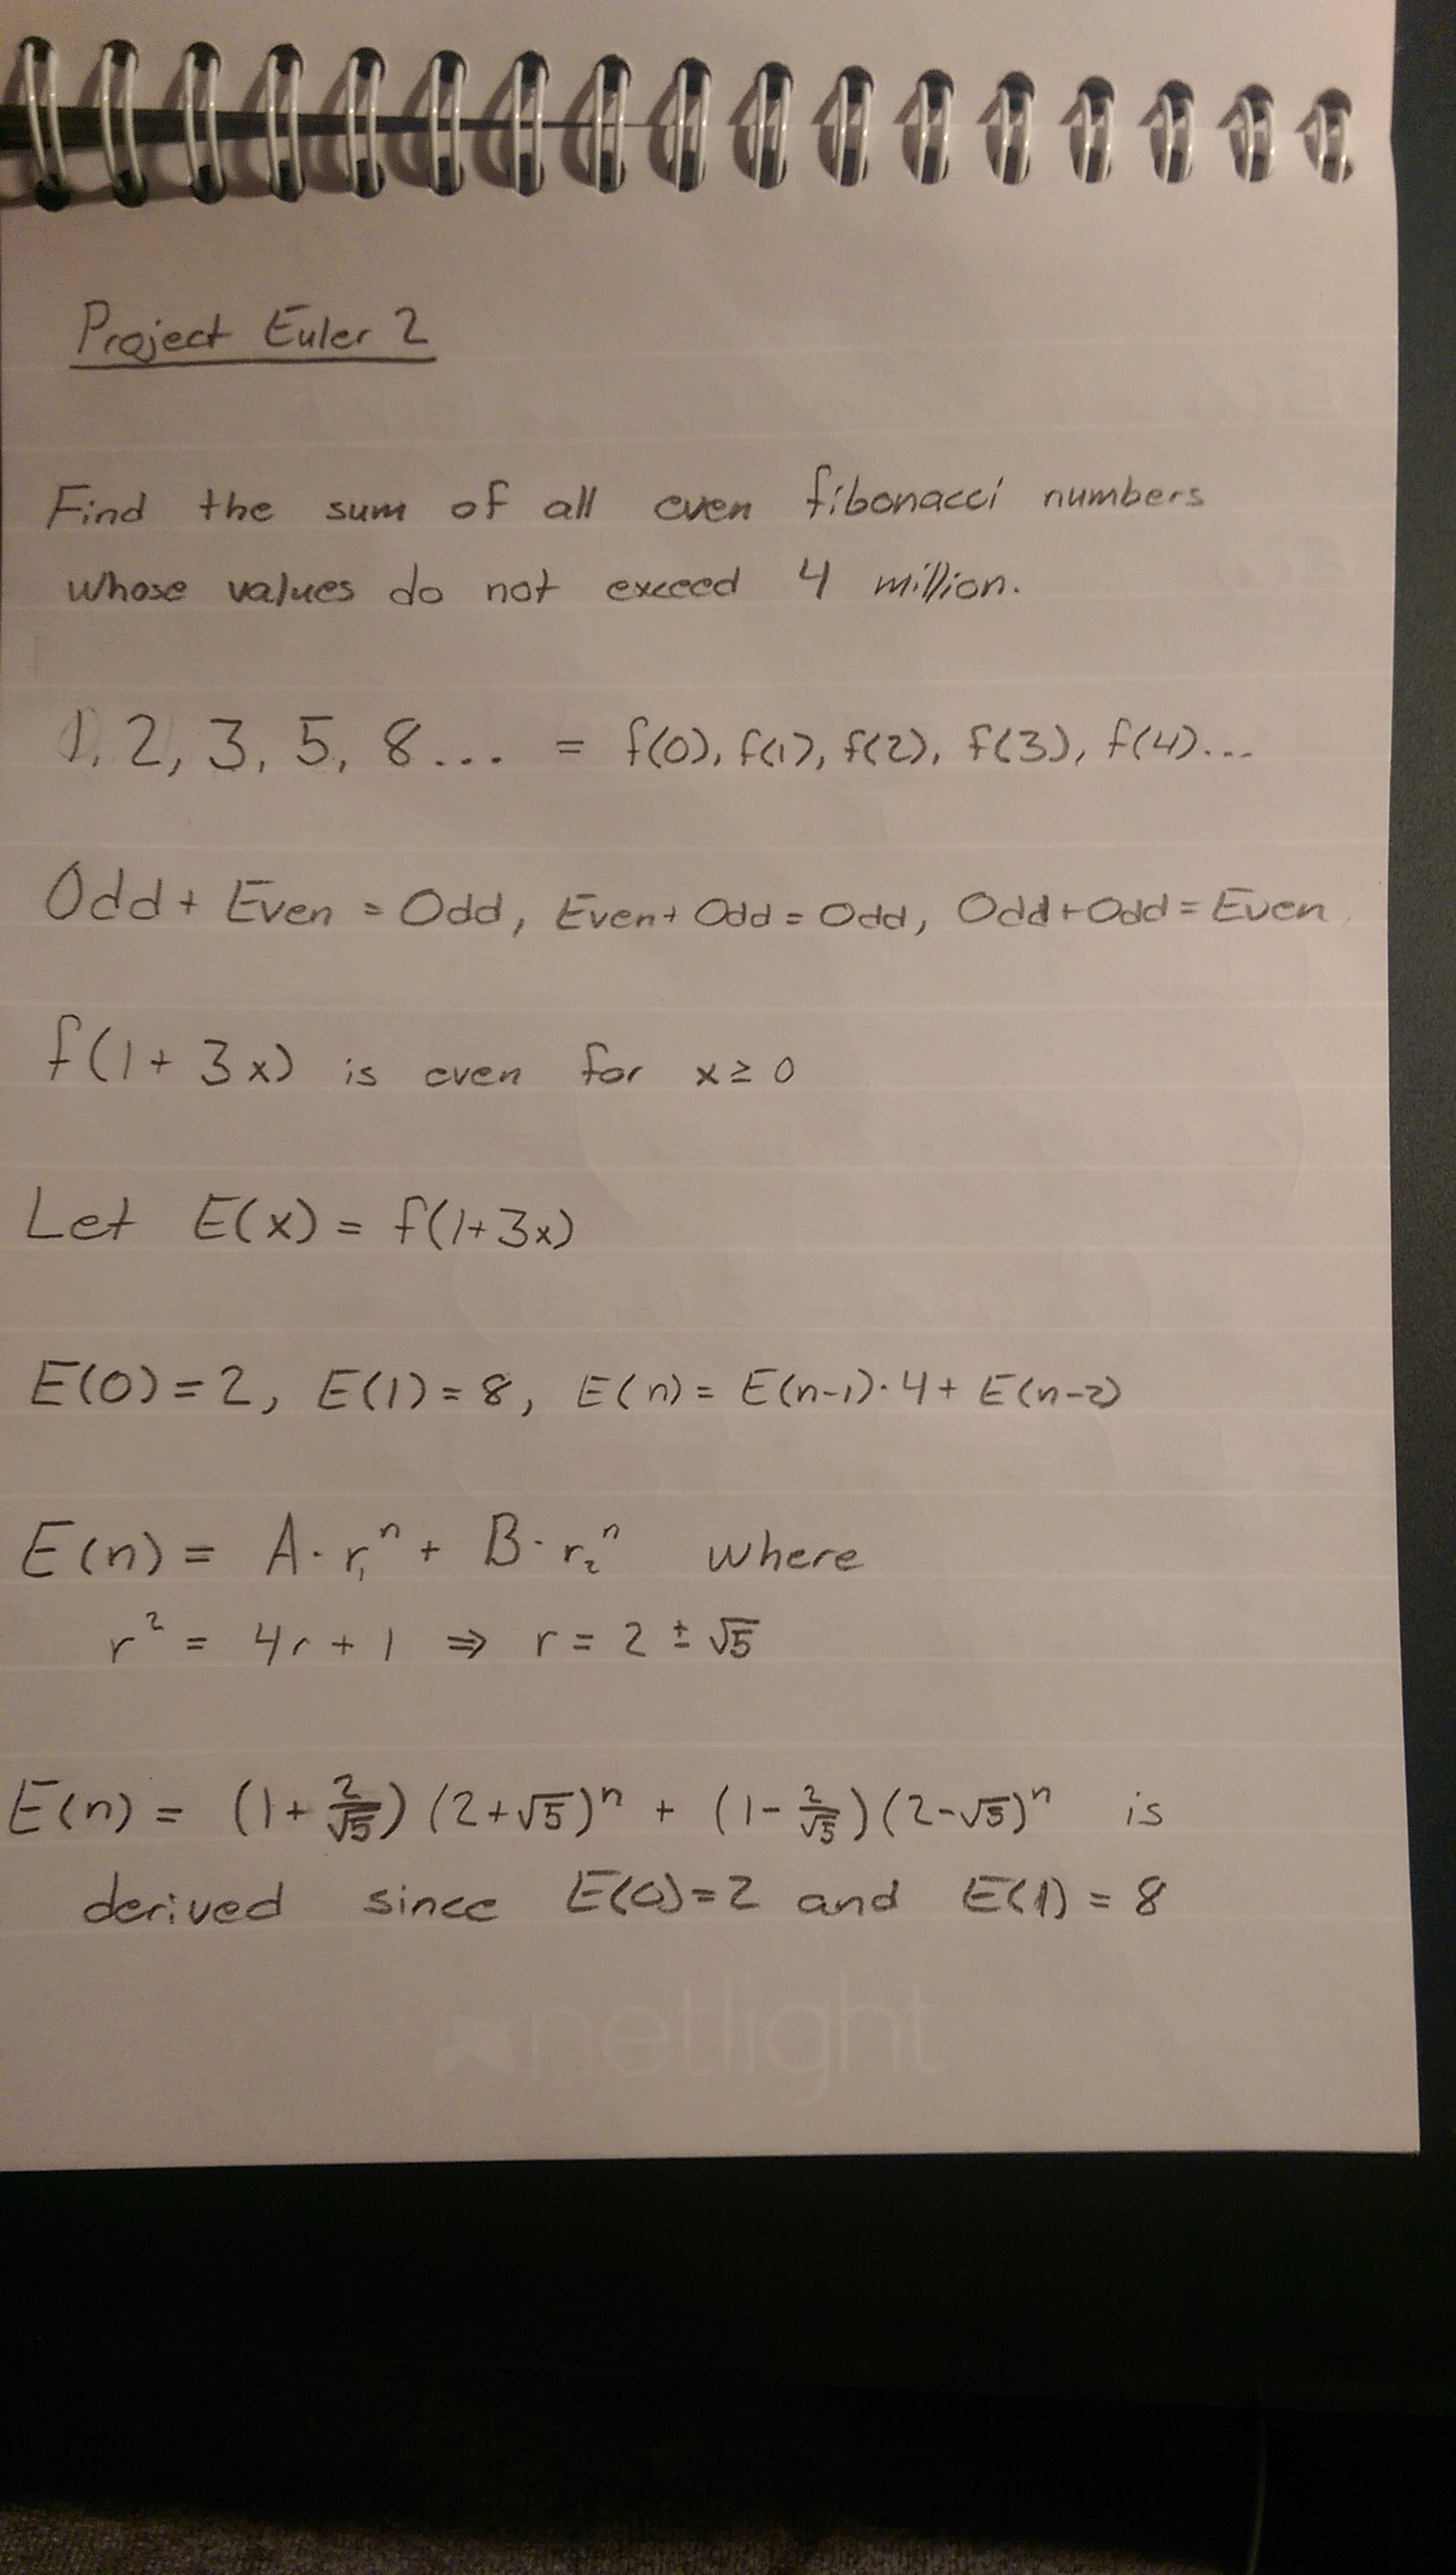 Project Euler 2
Find the sum of all even fibonacci numbers
whose values do not exceed 4 million.
1, 2, 3, 5, 8... = f(0), f(1), f(2), f(3), f(4)...
Odd + Even = Odd, Even + Odd = Odd, Odd + Odd = Even
f(1 + 3x) is even for x ≥ 0
Let E(x) = f(1+3x)
E(0) = 2, E(1) = 8, E(n) = E(n-1)·4 + E(n-2)
E(n) = A·r₁ⁿ + B·r₂ⁿ where
r² = 4r + 1 ⇒ r = 2 ± √5
E(n) = (1 + 2/√5)(2+√5)ⁿ + (1 - 2/√5)(2-√5)ⁿ is
derived since E(0)=2 and E(1) = 8
netlight